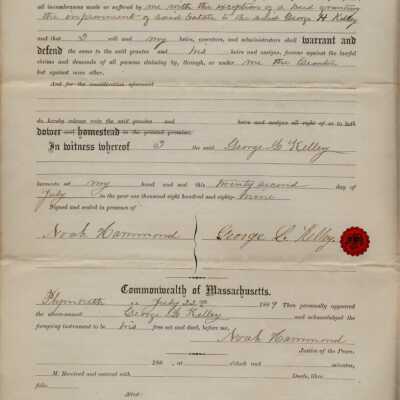 all incumbrances made or suffered by me with the exception of a deed granting
the improvement of said Estate to the said George H Kelley
and that I will and my heirs, executors, and administrators shall warrant and
defend the same to the said grantee and his heirs and assigns, forever against the lawful
claims and demands of all persons claiming by, through, or under me the Grantor
but against none other.
And for the consideration aforesaid
do hereby release unto the said grantee and heirs and assigns all right of or to both
dower and homestead in the granted premises.
In witness whereof I the said George C Kelley
hereunto set my hand and seal this twenty second day of
July in the year one thousand eight hundred and eighty nine
Signed and sealed in presence of
Noah Hammond George C. Kelley.
Commonwealth of Massachusetts.
Plymouth ss July 22d 1889 Then personally appeared
the above-named George C Kelley and acknowledged the
foregoing instrument to be his free act and deed, before me,
Noah Hammond
Justice of the Peace.
188 , at o'clock and minutes,
M. Received and entered with Deeds, libro
folio
Attest: